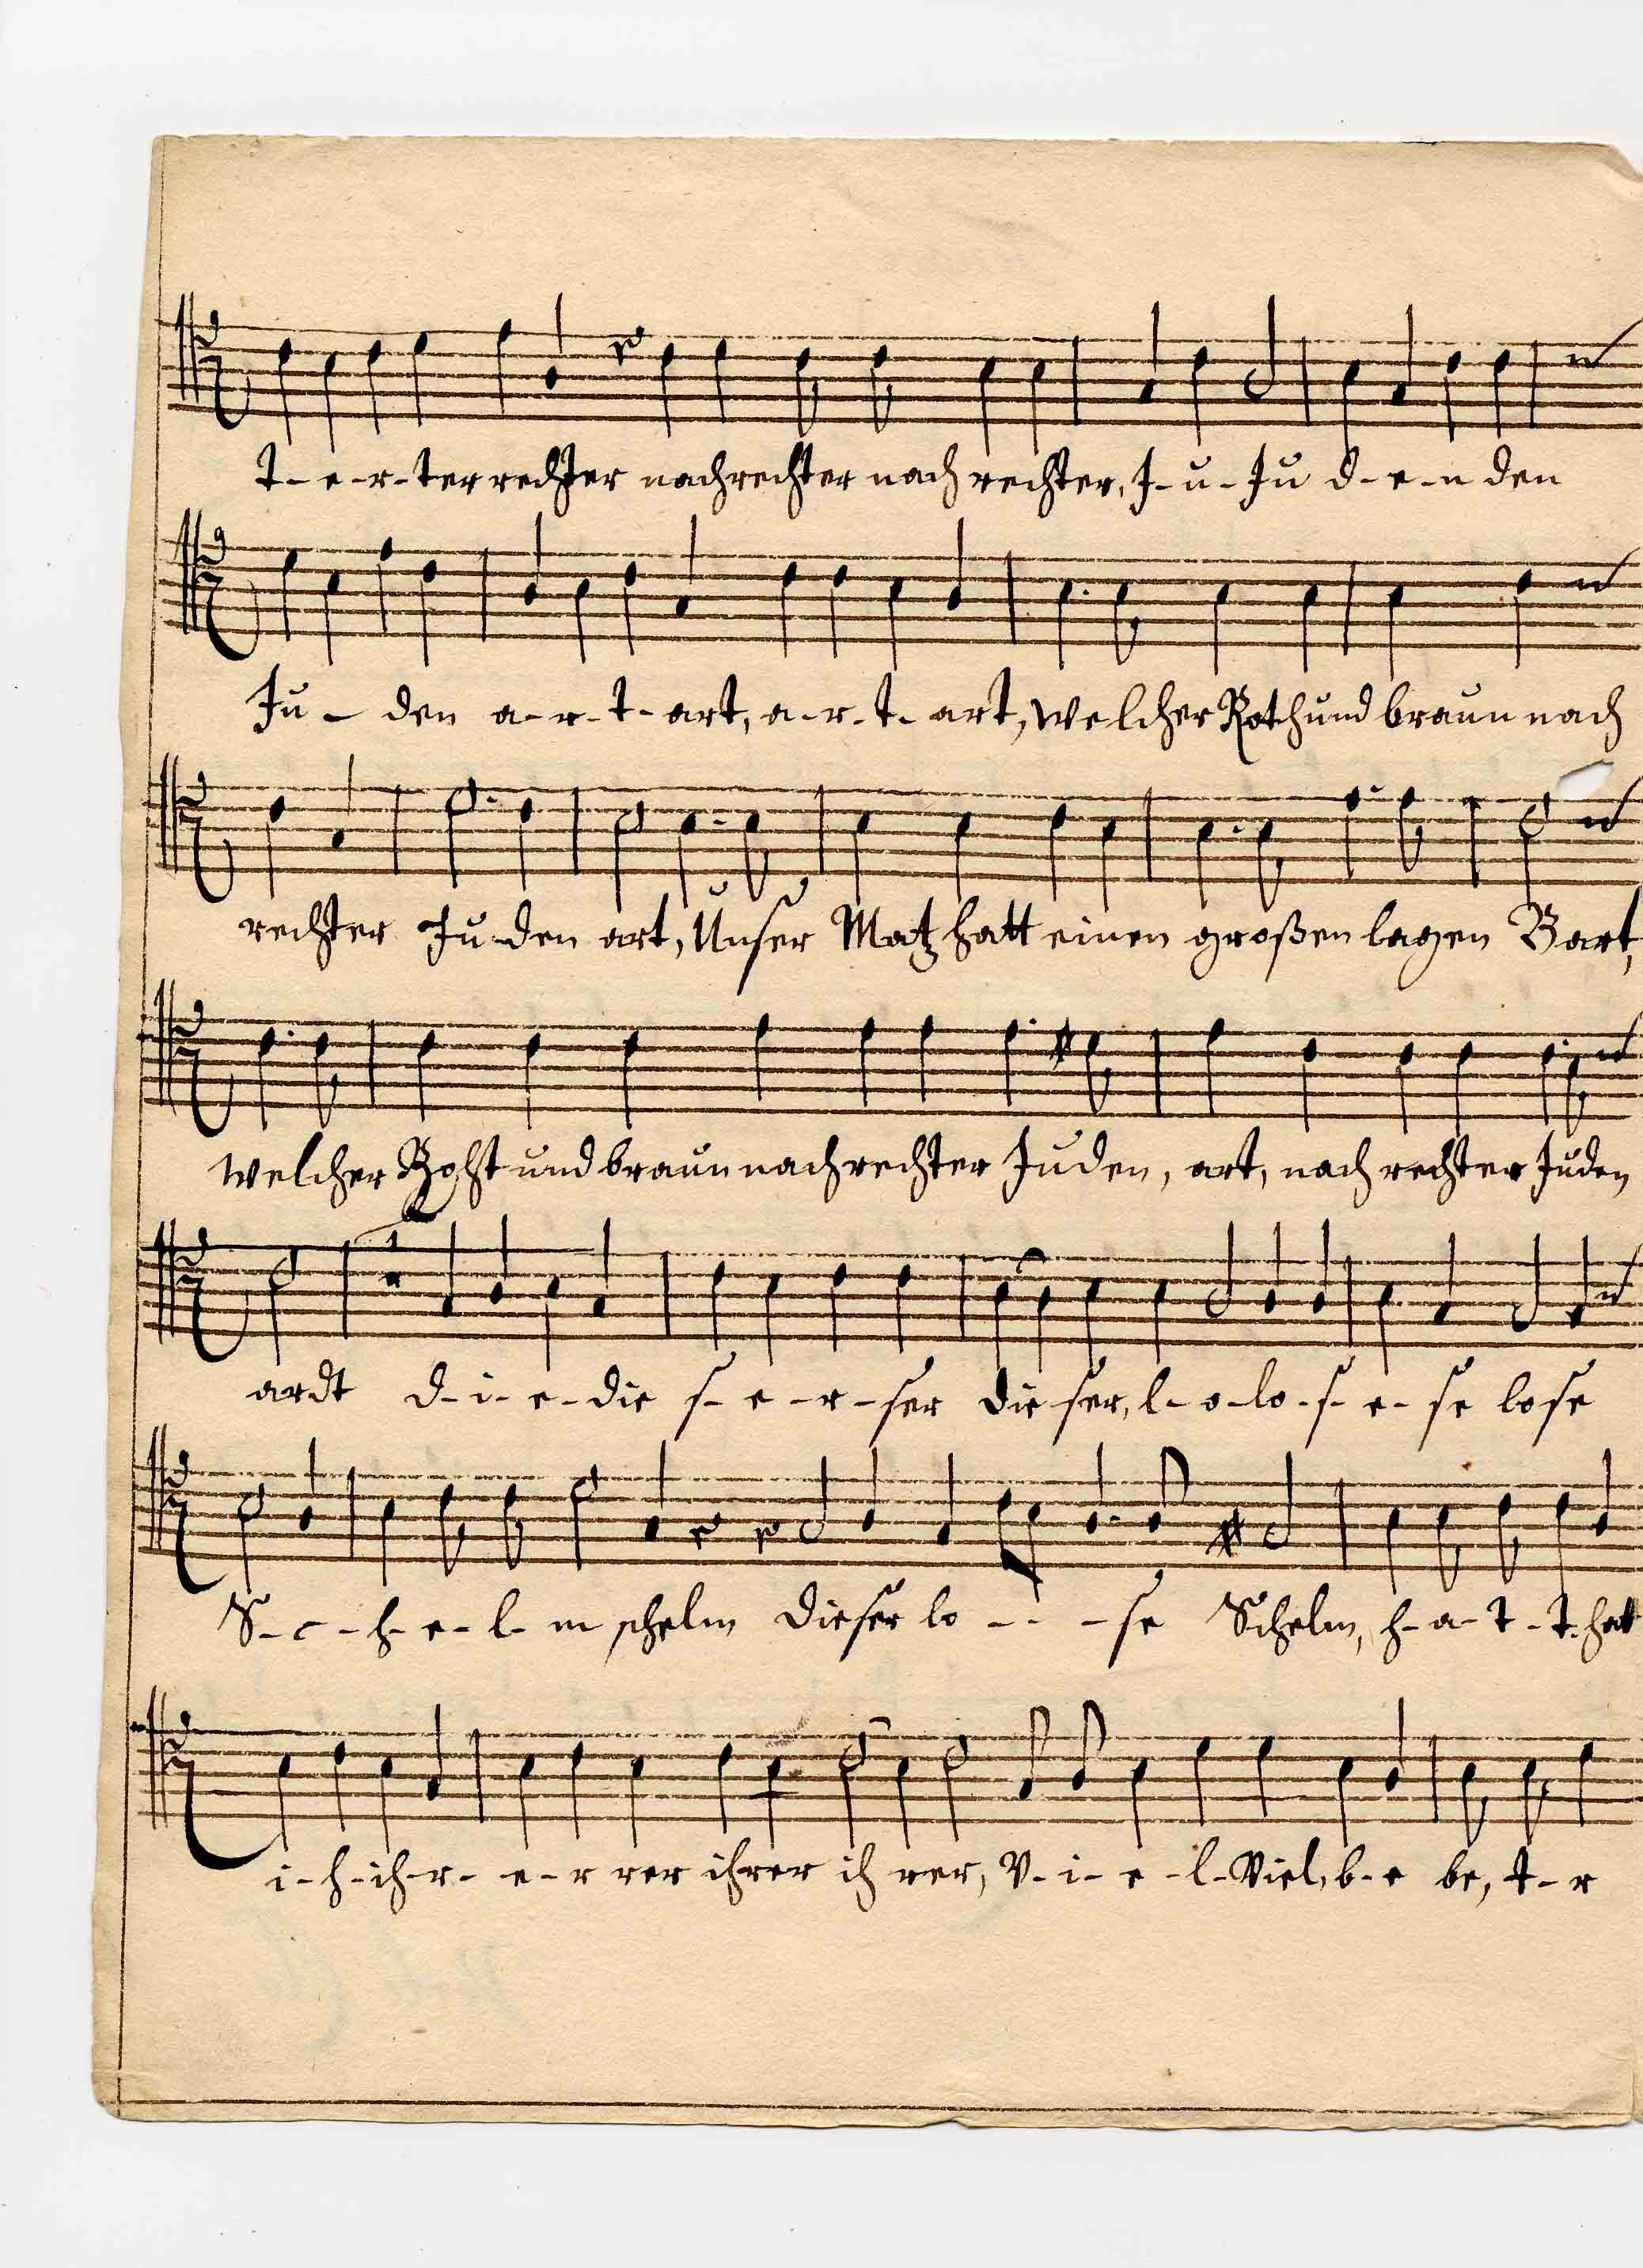 t-e-r-ter rechter nach rechter nach rechter, J-u-Ju d-e-n den
Ju - den a-r-t-art, a-r-t-art, welcher Roth und braun nach
rechter Ju-den art, Unser Matz hatt einen großen lagen Bart,
welcher Roht und braun nach rechter Juden, art, nach rechter Juden
ardt d-i-e-die s-e-r-ser dieser, l-o-lo-s-e-se lose
S-c-h-e-l-m schelm dieser lo - - - se Schelm, h-a-t-t. hatt
i-h-ih-r-e-r rer ihrer ih rer, V-i-e-l-Viel, b-e be, t-r